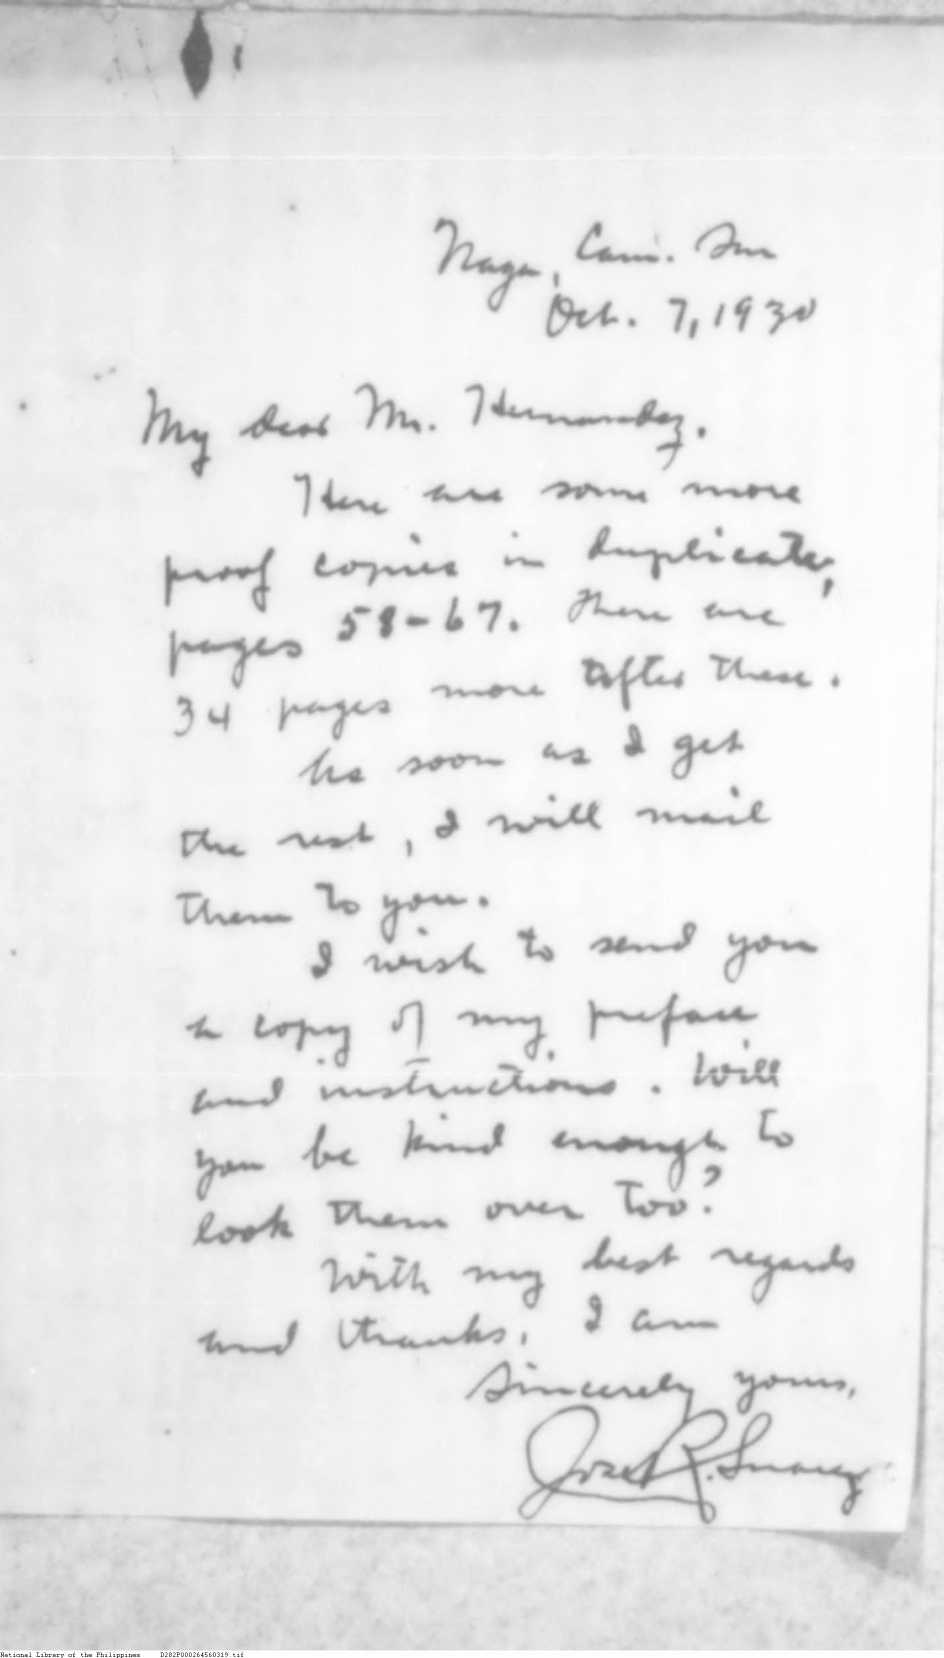 Naga, Cam. Sur
Oct. 7, 1930
My dear Mr. Hernandez,
Here are some more
proof copies in duplicate,
pages 58-67. There are
34 pages more after these.
As soon as I get
the rest, I will mail
them to you.
I wish to send you
a copy of my preface
and instructions. Will
you be kind enough to
look them over too?
With my best regards
and thanks, I am
Sincerely yours,
Jose R. Suarez
National Library of the Philippines D282P000264560319.tif